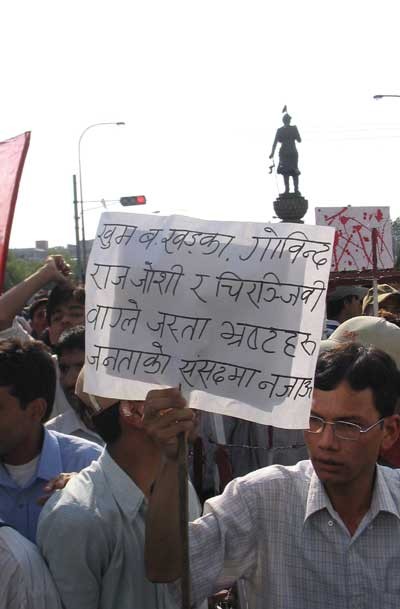 खुम ब. खड्का, गोविन्द
राज जोशी र चिरञ्जिवी
वाग्ले जस्ता भ्रष्टहरु
जनताको संसदमा नजाऊ